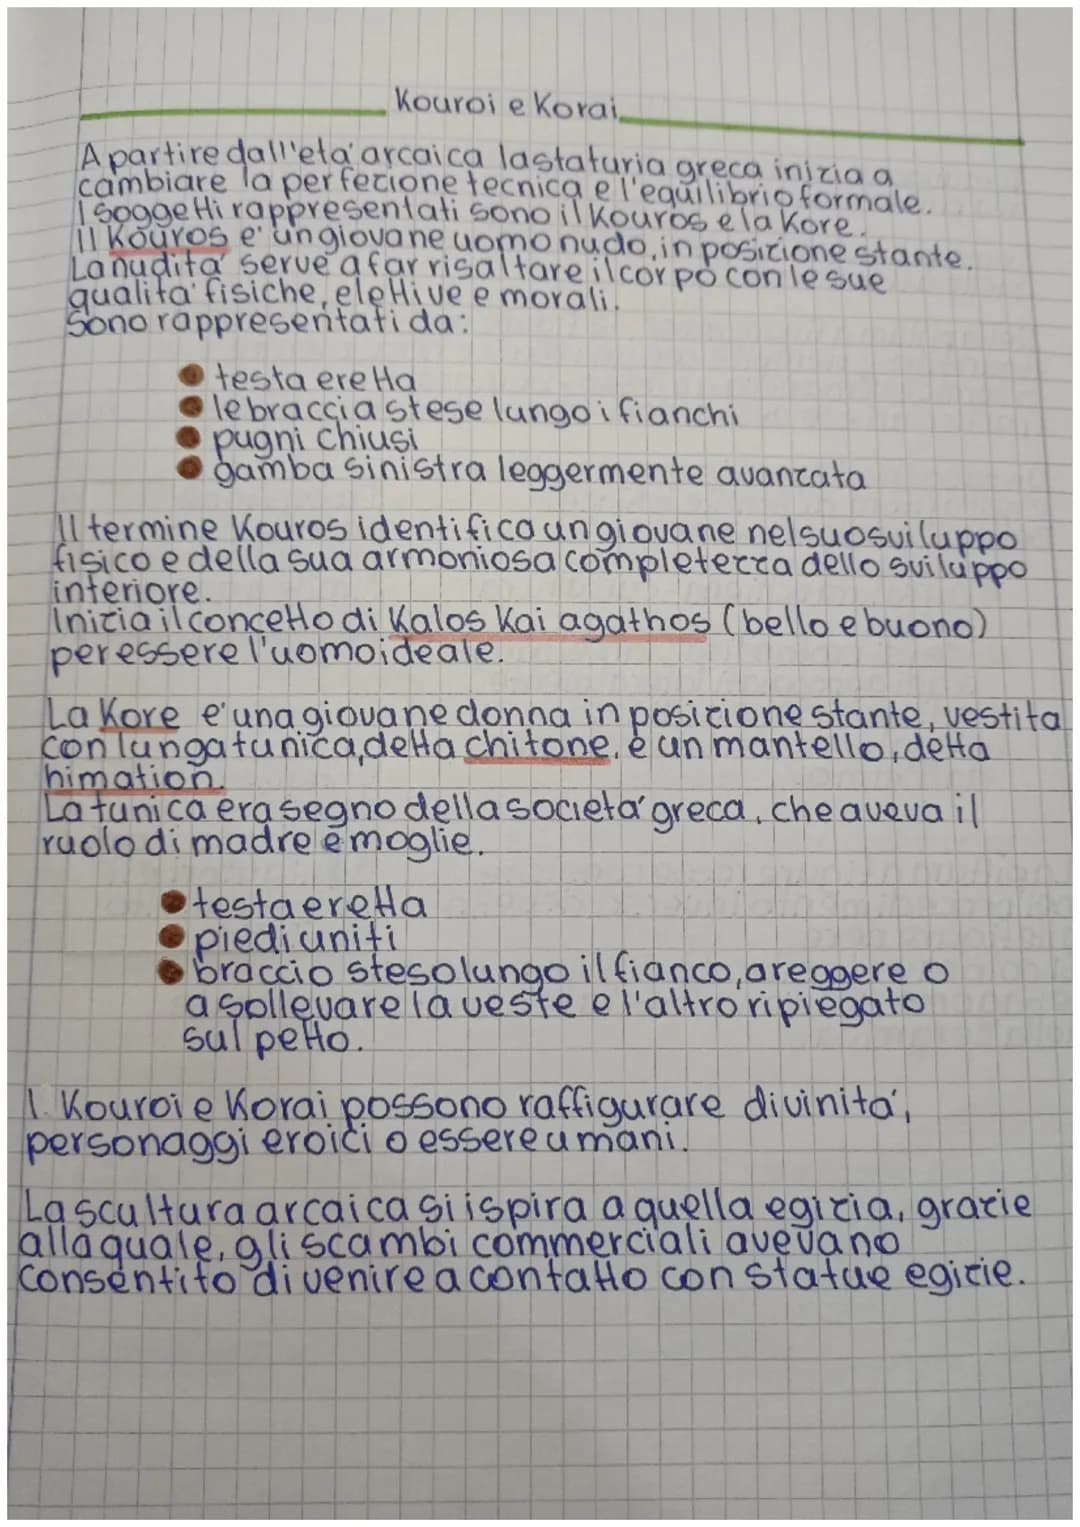 Kouroi e Korai
A partire dall'eta' arcaica la staturia greca inizia a
cambiare la perfezione tecnica e l'equilibrio formale.
I soggetti rappresentati sono il Kouros e la Kore.
Il Kouros e' un giovane uomo nudo, in posizione stante.
La nudita' serve a far risaltare il corpo con le sue
qualita' fisiche, elettive e morali.
Sono rappresentati da:
• testa eretta
• le braccia stese lungo i fianchi
• pugni chiusi
• gamba sinistra leggermente avanzata
Il termine Kouros identifica un giovane nel suo sviluppo
fisico e della sua armoniosa completezza dello sviluppo
interiore.
Inizia il concetto di Kalos Kai agathos (bello e buono)
per essere l'uomo ideale.
La Kore e' una giovane donna in posizione stante, vestita
con lunga tunica, detta chitone, e un mantello, detta
himation.
La tunica era segno della societa' greca, che aveva il
ruolo di madre e moglie.
• testa eretta
• piedi uniti
• braccio steso lungo il fianco, a reggere o
a sollevare la veste e l'altro ripiegato
sul petto.
I Kouroi e Korai possono raffigurare divinita',
personaggi eroici o essere umani.
La scultura arcaica si ispira a quella egizia, grazie
alla quale, gli scambi commerciali avevano
consentito di venire a contatto con statue egizie.